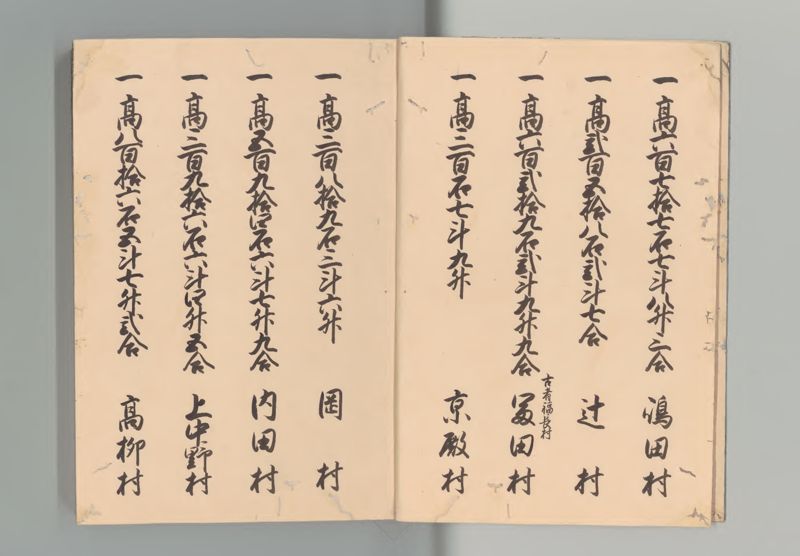 一高六百七拾七石七斗八升三合　嶋田村
一高弐百五拾八石弐斗七合　辻村
古者福長村
一高六百弐拾九石弐斗九升九合　冨田村
一高三百石七斗九升　京殿村
一高三百八拾九石三斗六升　岡村
一高五百九拾四石六斗七升九合　内田村
一高三百九拾六石六斗四升五合　上中野村
一高八百拾六石五斗七升弐合　高柳村